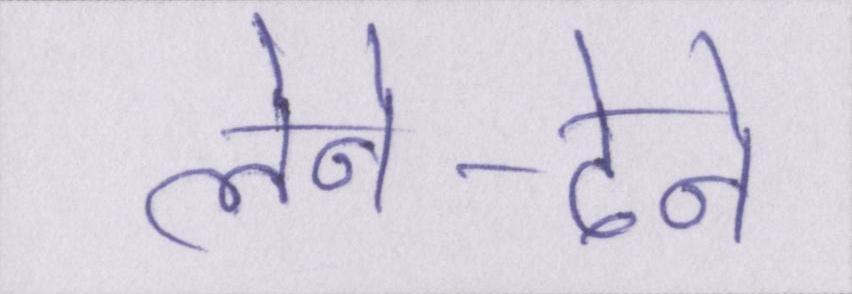 लेने-देने